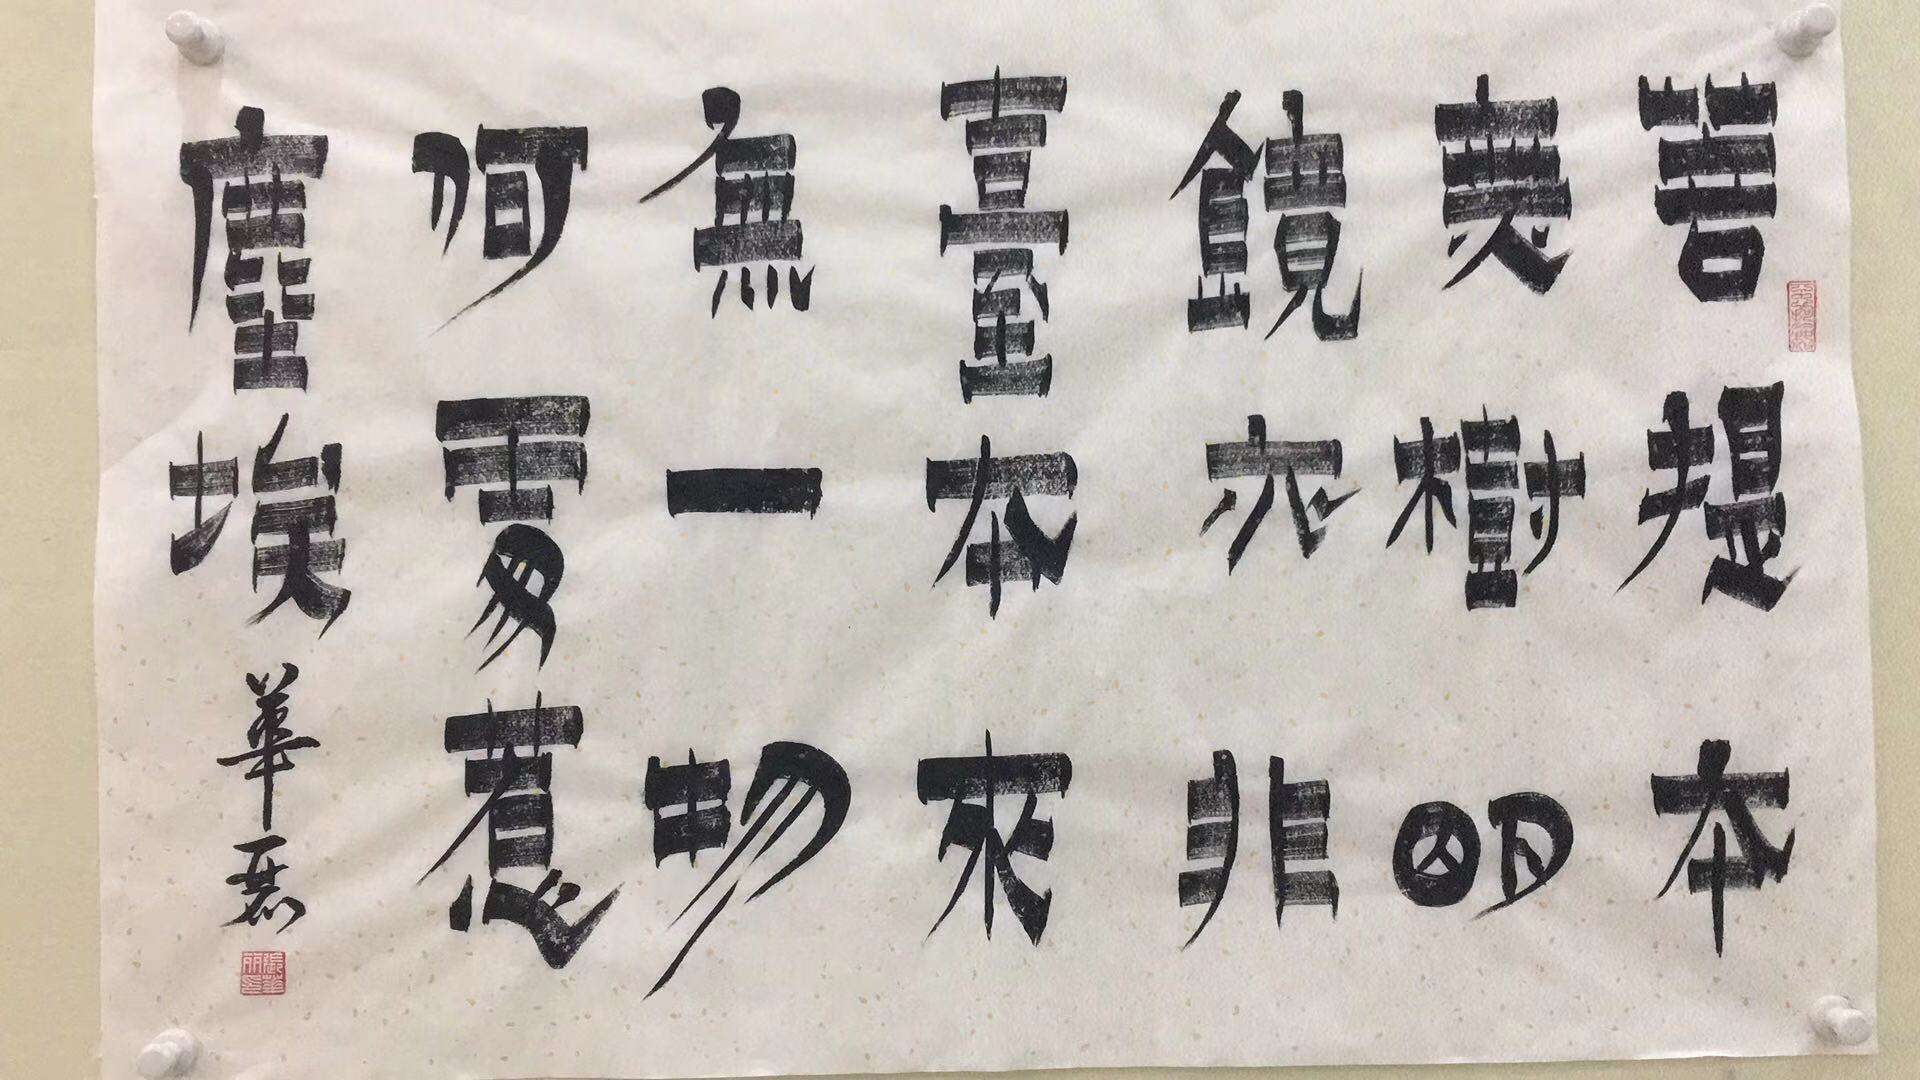 菩提本
無樹明
鏡亦非
臺本來
無一物
何處惹
塵埃
華麗
張華丽印